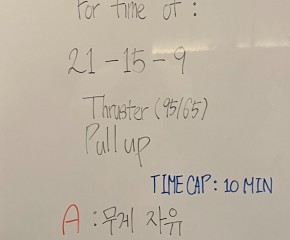 For time of :
21 - 15 - 9
Thruster (95/65)
Pull up
TIME CAP : 10 MIN
A : 무게 자유